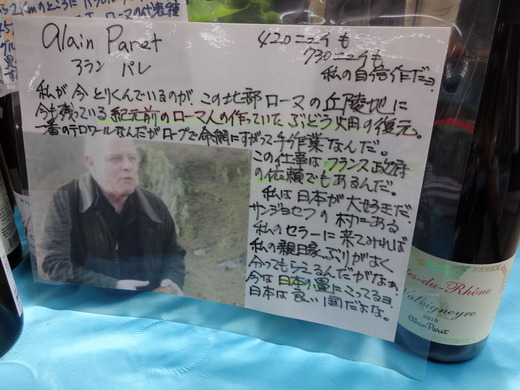 Alain Paret
アラン パレ
420ニュイも
730ニュイも
私の自信作だョ
私が今とりくんでいるのが、この北部ローヌの丘陵地に
今も残っている紀元前のローマ人の作っていた、ぶどう畑の復元。
一番のテロワールなんだがロープで命綱にすがって手作業なんだ。
この仕事はフランス政府
の依頼でもあるんだ。
私は日本が大好きだ。
サンジョセフの村にある
私のセラーに来てみれば
私の親日家ぶりがよく
今ってもらえるんだがなぁ。
今は日本小夏にこってるョ
日本は良い国だよな。
-du-Rhône
Valvigneyre
2019
Alain Paret